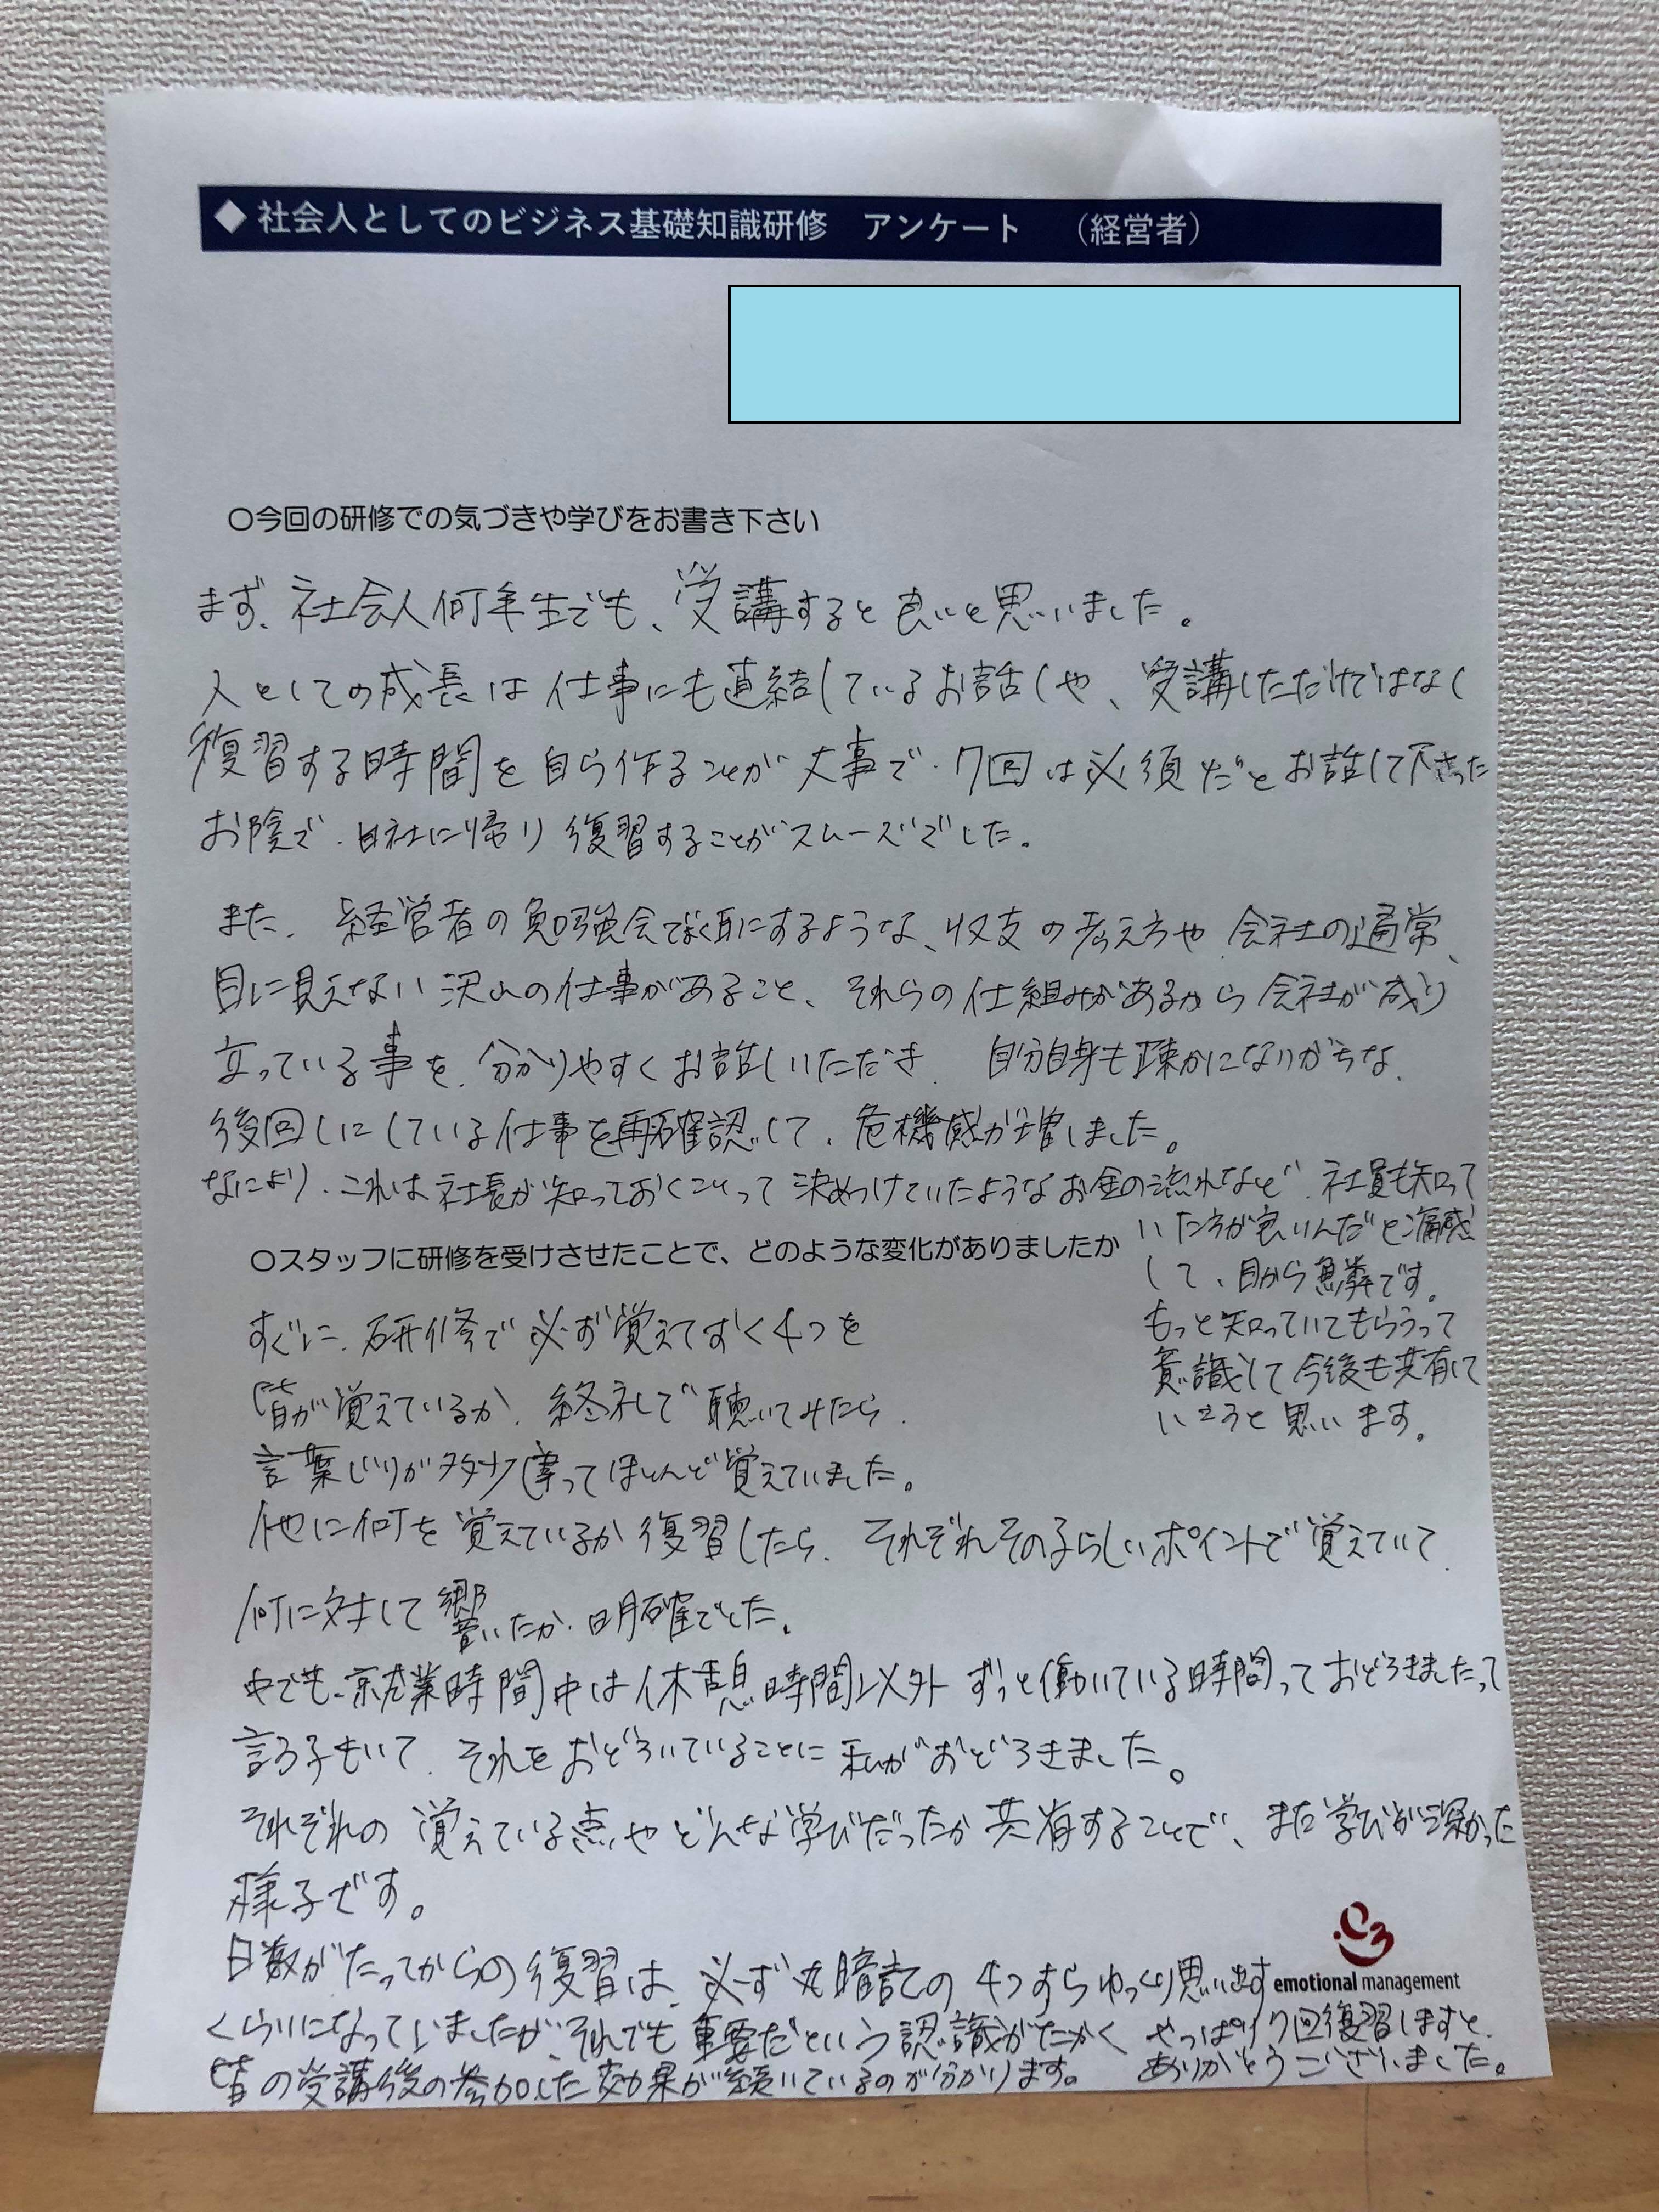 ◆ 社会人としてのビジネス基礎知識研修　アンケート　（経営者）
〇今回の研修での気づきや学びをお書き下さい
まず、社会人何年生でも、受講すると良いと思いました。
人としての成長は仕事にも直結しているお話しや、受講しただけではなく
復習する時間を自ら作ることが大事で、7回は必須だとお話して下さった
お陰で、自社に帰り復習することがスムーズでした。
また、経営者の勉強会でよく耳にするような、収支の考え方や、会社の通常、
目に見えない沢山の仕事があること、それらの仕組みがあるから会社が成り
立っている事を、分かりやすくお話しいただき、自分自身も疎かになりがちな、
後回しにしている仕事を再確認して、危機感が増しました。
なにより、これは社長が知っておくことって決めつけていたようなお金の流れなど、社員も知って
いた方が良いんだと痛感
して、目から鱗です。
もっと知っていてもらうって
意識して今後も共有して
いこうと思います。
〇スタッフに研修を受けさせたことで、どのような変化がありましたか
すぐに、研修で必ず覚えておく4つを
皆が覚えているか、終礼で聴いてみたら、
言葉じりが多少違ってほとんど覚えていました。
他に何を覚えているか復習したら、それぞれその子らしいポイントで覚えていて、
何に対して響いたか、明確でした。
中でも、就業時間中は休憩時間以外ずっと働いている時間っておどろきましたって
言う子もいて、それをおどろいていることに私がおどろきました。
それぞれの覚えている点やどんな学びだったか共有することで、また学びが深かった
様子です。
日数がたってからの復習は、必ず丸暗記の4つすらゆっくり思い出す
くらいになっていましたが、それでも重要だという認識がたかく、やっぱり7回復習しますと、
皆の受講後の参加した効果が続いているのが分かります。ありがとうございました。
emotional management